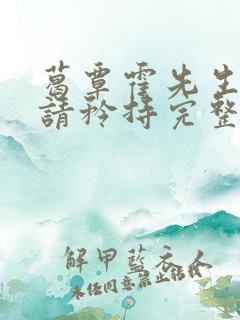 葛覃霍先生
請矜持完整
解甲藍衣人
未任同意禁止転教